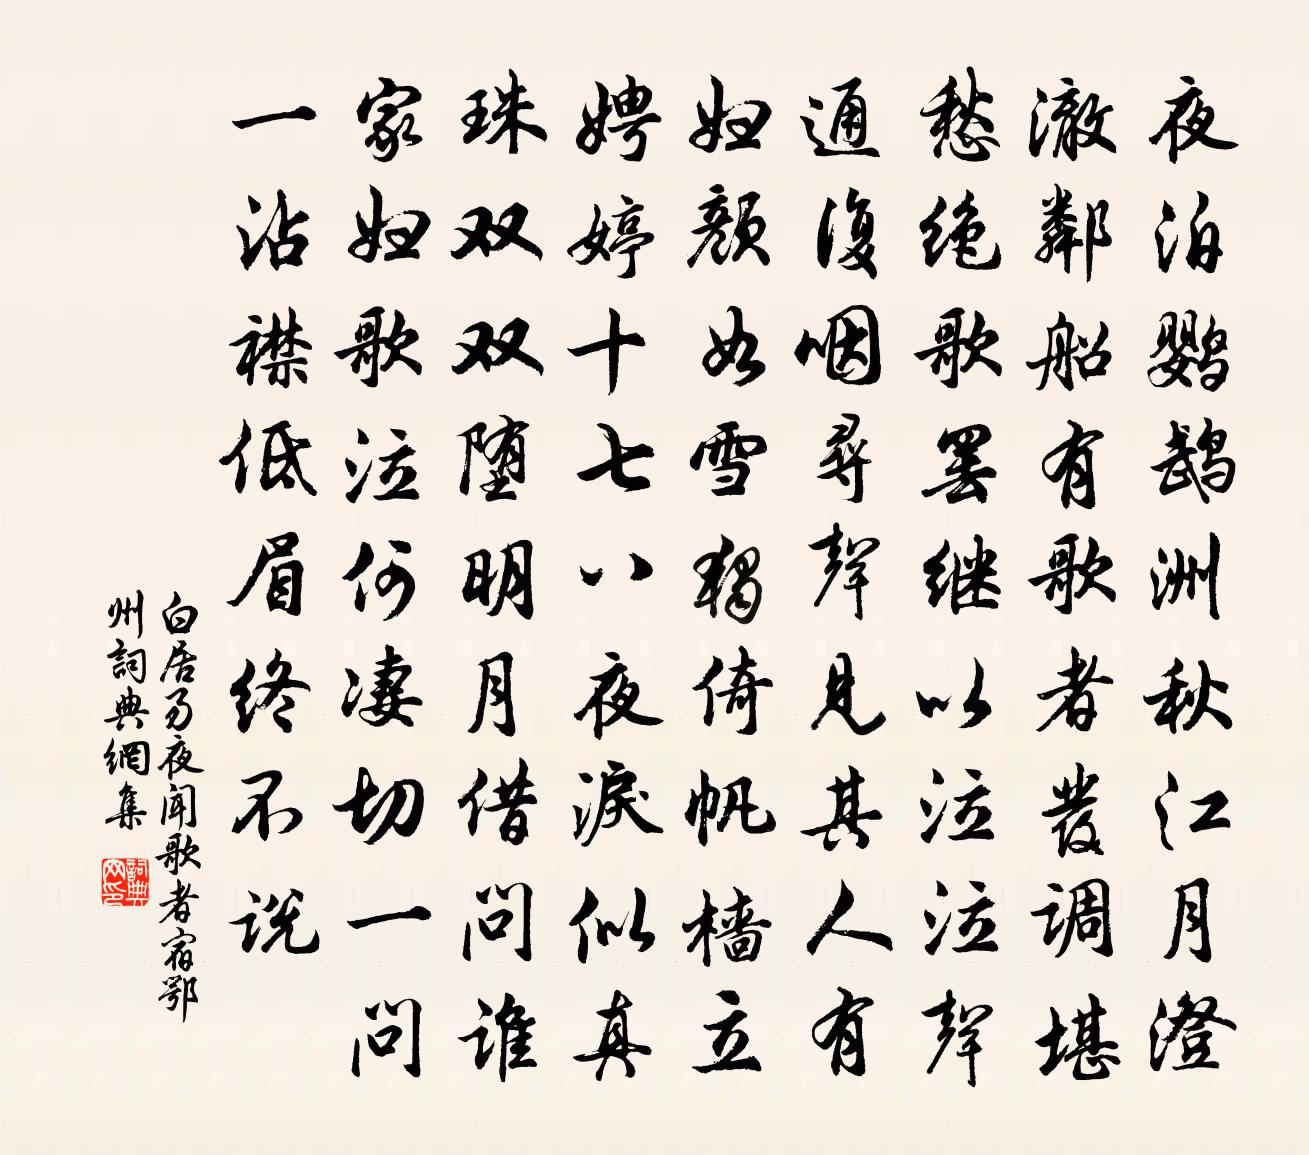 夜泊鹦鹉洲秋江月澄
澈鄰船有歌者發调堪
愁绝歌罢继以泣泣聲
通復咽尋聲見其人有
妇颜如雪獨倚帆樯立
娉婷十七八夜淚似真
珠双双堕明月借问谁
家妇歌泣何凄切一问
一沾襟低眉终不说
白居易夜闻歌者宿鄂
州詞典網集
詞典网印